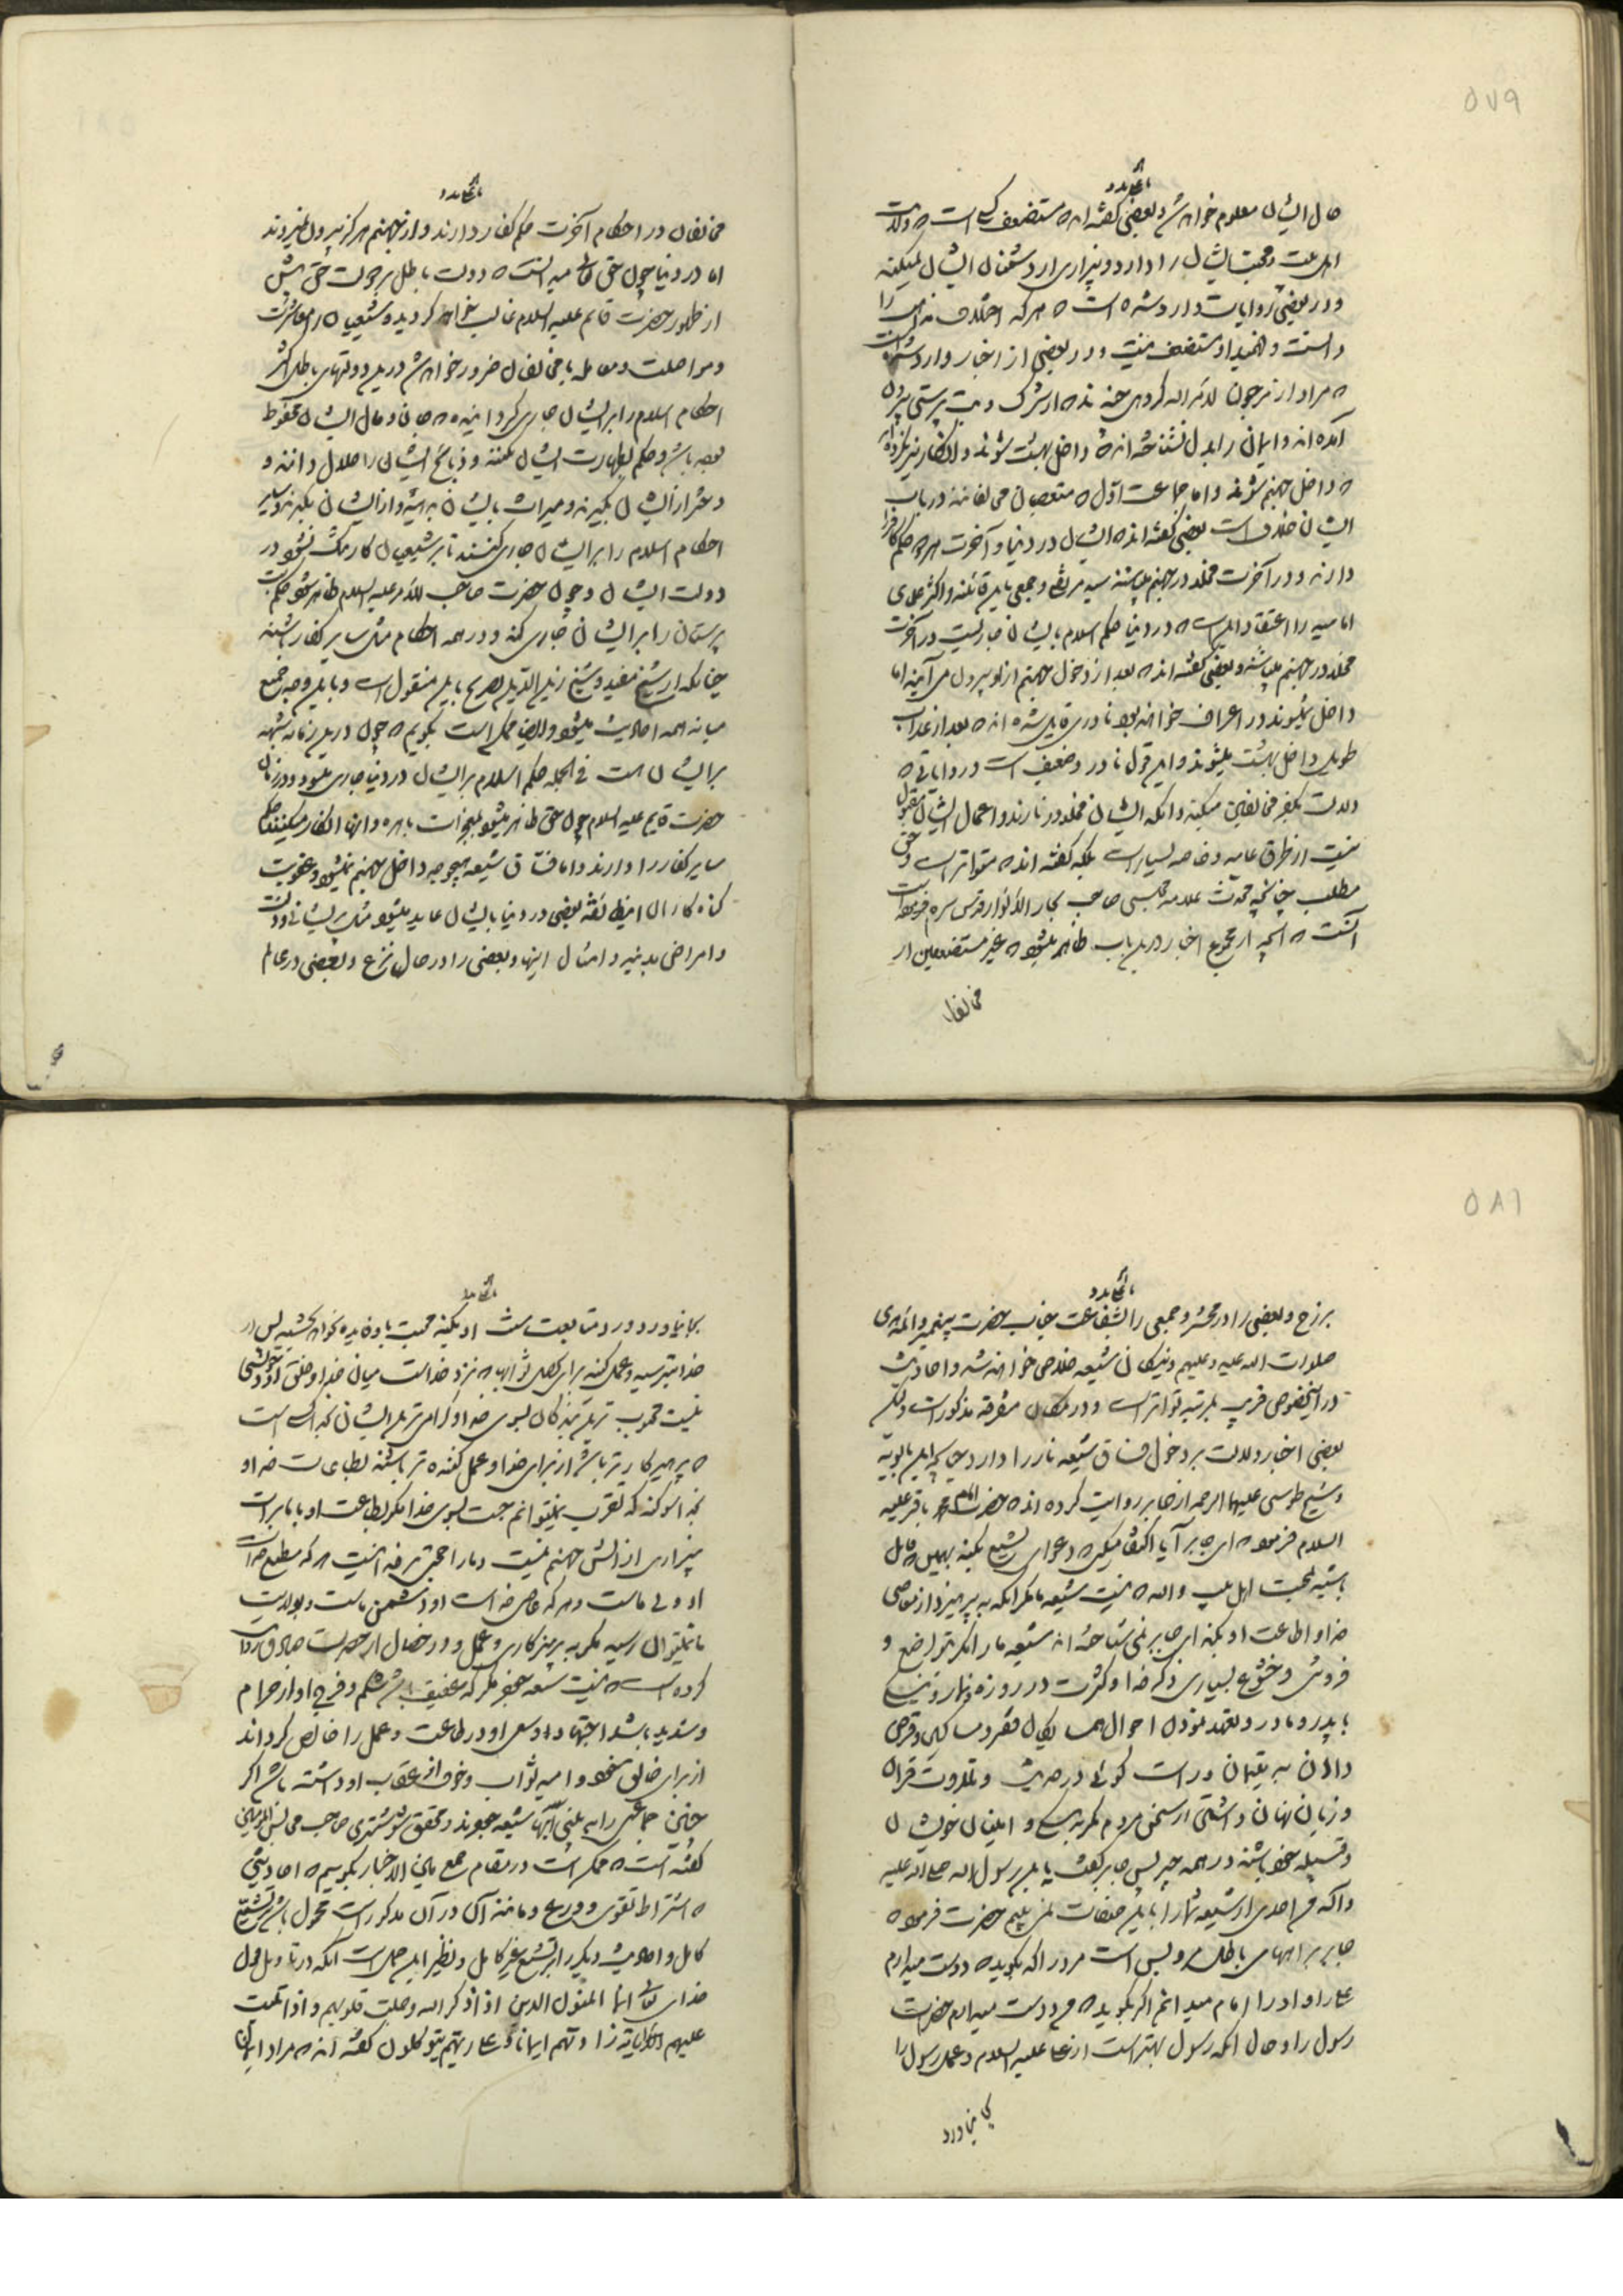 ۵۷۹
حال ایشان معلوم خواهد شد و بعضی گفته‌اند که مستضعف کسی است که ولایت
اهل بیت و محبت ایشان را دارد و بیزاری از دشمنان ایشان نمیکند
و در بعضی روایات وارد شده است که هر که اختلاف مذاهب را
دانست و فهمید او مستضعف نیست و در بعضی از اخبار وارد شده است
که مراد از مرجون لامر الله گروهی چندند که از شرک و بت پرستی بیرون
آمده‌اند و ایمان را بدل نشناخته‌اند که داخل بهشت شوند و انکار نیز نکرده‌اند
که داخل جهنم شوند و اما جماعت اول که متعصبان مخالفانند در باب
ایشان خلاف است بعضی گفته‌اند که ایشان در دنیا و آخرت هر دو حکم کافر
دارند و در آخرت مخلد در جهنم میباشند سید مرتضی و جمعی باین قائلند و اکثر علمای
امامیه را اعتقاد اینست که در دنیا حکم اسلام بایشان جاریست در آخرت
مخلد در جهنم میباشند و بعضی گفته‌اند که بعد از دخول جهنم از او بیرون می‌آیند اما
داخل نمیشوند در اعراف خواهند بود نادری قایل شده‌اند که بعد از عذاب
طویل داخل بهشت میشوند و این قول نادر و ضعیف است و روایاتی که
دلالت بکفر مخالفین میکند و آنکه ایشان مخلد در نارند و اعمال ایشان مقبول
نیست از طرق عامه و خاصه بسیار است بلکه گفته‌اند که متواتر است و حق
مطلب چنانچه محدث علامه مجلسی صاحب بحار الانوار قدس سره فرموده است
آنست که آنچه از مجموع اخبار در این باب ظاهر میشود که غیر مستضعفین از
مخالفان
مخالفان در احکام آخرت حکم کفار دارند و از جهنم هرگز بیرون نمیروند
اما در دنیا چون حق تعالی میدانست که دولت باطل بر دولت حق پیش
از ظهور حضرت قائم علیه السلام غالب خواهد گردید و شیعیان را معاشرت
و مواصلت و معامله با مخالفان ضرور خواهد شد در این دولتهای باطل اکثر
احکام اسلام را بر ایشان جاری گردانیده که جان و مال ایشان محفوظ
بوده باشد و حکم بطهارت ایشان بکنند و ذبایح ایشان را حلال دانند و
دختر از ایشان بگیرند و میراث بایشان بدهند و از ایشان بگیرند و سایر
احکام اسلام را بر ایشان جاری کنند تا بر شیعیان کار تنگ نشود در
دولت ایشان و چون حضرت صاحب الامر علیه السلام ظاهر شود حکم بت
پرستان را بر ایشان جاری کند و در همه احکام مثل سایر کفار باشند
چنانکه از شیخ مفید و شیخ زین الدین تصریح باین منقول است و باین وجه جمع
میانه همه احادیث میشود و ایضا ممکن است بگوییم که چون در این زمانه شبهه
بر ایشان هست فی الجمله حکم اسلام بر ایشان در دنیا جاری میشود و در زمان
حضرت قایم علیه السلام چون حق ظاهر میشود بمعجزات باهره و آنها انکار میکنند حکم
سایر کفار را دارند و اما فساق شیعه بهیچ وجه داخل جهنم نمیشوند و عقوبت
گناه کاران این طائفه بعضی در دنیا بایشان عاید میشود مثل پریشانی
و امراض بدنیه و امثال اینها و بعضی را در حال نزع و بعضی در عالم
۵۸۱
برزخ و بعضی را در محشر و جمعی را بشفاعت جناب حضرت پیغمبر و ائمه هدی
صلوات الله علیه و علیهم و نیکان شیعه خلاصی خواهند شد و احادیث
در این خصوص قریب بمرتبه تواتر است و در مکان متفرقه مذکور است و لکن
بعضی اخبار دلالت بر دخول فساق شیعه نار را دارد چنانچه ابن بابویه
و شیخ طوسی علیهما الرحمه از جابر روایت کرده‌اند که حضرت امام محمد باقر علیه
السلام فرمود که ای جابر آیا اکتفا میکند که دعوای تشیع بکند بهمین که قائل
باشد بمحبت اهل بیت والله که نیست شیعه ما مگر آنکه بپرهیزد از معاصی
خدا و اطاعت او بکند ای جابر نمی‌شناخته‌اند شیعه ما را مگر بتواضع و
فروتنی و خشوع بسیاری ذکر خدا و کثرت در روزه و نماز و نیکی
با پدر و مادر و تعهد نمودن احوال همسایگان فقرا و مساکین و قرض
داران و یتیمان و راست گوئی در حدیث و تلاوت قرآن
و زبان نگاهداشتن از سخن مردم مگر به نیکی و امینان خویشان
و قبیله خود باشند در همه چیز پس جابر گفت یا بن رسول الله صلی الله علیه
و آله من احدی از شیعه شما را باین صفات نمی‌بینم حضرت فرمود که
جابر براههای باطل مرو بس است مرد را که بگوید که دوست میدارم
علی را و او را امام میدانم اگر بگوید که من دوست میدارم حضرت
رسول را و حال آنکه رسول بهتر است از علی علیه السلام و عمل رسول را
بجا نیاورد
بجا نیاورد و در متابعت سنت او نکند محبت باو فایده نخواهد بخشید پس از
خدا بترسید و عمل کنید برای تحصیل ثوابها که نزد خداست میان خدا و خلق او خویشی
نیست محبوب ترین بندگان بسوی خدا و گرامی ترین ایشان نزد خدا کسی است
که پرهیزکارتر باشد از برای خدا و عمل کننده‌تر باشد بطاعت خدا و
بخدا سوگند که تقرب نمیتوانیم جست بسوی خدا مگر بطاعت او با ما برات
بیزاری از آتش جهنم نیست و ما را حجتی بر خدا نیست هر که مطیع خداست
او ولی ماست و هر که عاصی خداست او دشمن ماست و بولایت
ما نمیتوان رسید مگر به پرهیزکاری و عمل و در خصال از حضرت صادق روایت
کرده است که نیست شیعه جعفر مگر که عفیف باشد شکم و فرج او از حرام
و شدید باشد اجتهاد و سعی او در طاعت و عمل را خالص گرداند
از برای خالق خود و امید ثواب و خوف از عقاب او داشته باشد اگر
چنین جماعتی را به بینی آنها شیعه جعفرند و محقق شوشتری صاحب مجالس المؤمنین
گفته است که ممکن است در مقام جمع مابین الاخبار بگوییم که احادیثی
که اشتراط تقوی و ورع و مانند آن در آن مذکور است محمول باشد بر تشیع
کامل و احادیث دیگر را بر تشیع غیر کامل و نظیر این حمل است آنکه در تأویل قول
خدای تعالی انما المؤمنون الذین اذا ذکر الله وجلت قلوبهم و اذا تلیت
علیهم آیاته زادتهم ایمانا و علی ربهم یتوکلون گفته‌اند که مراد ایمان